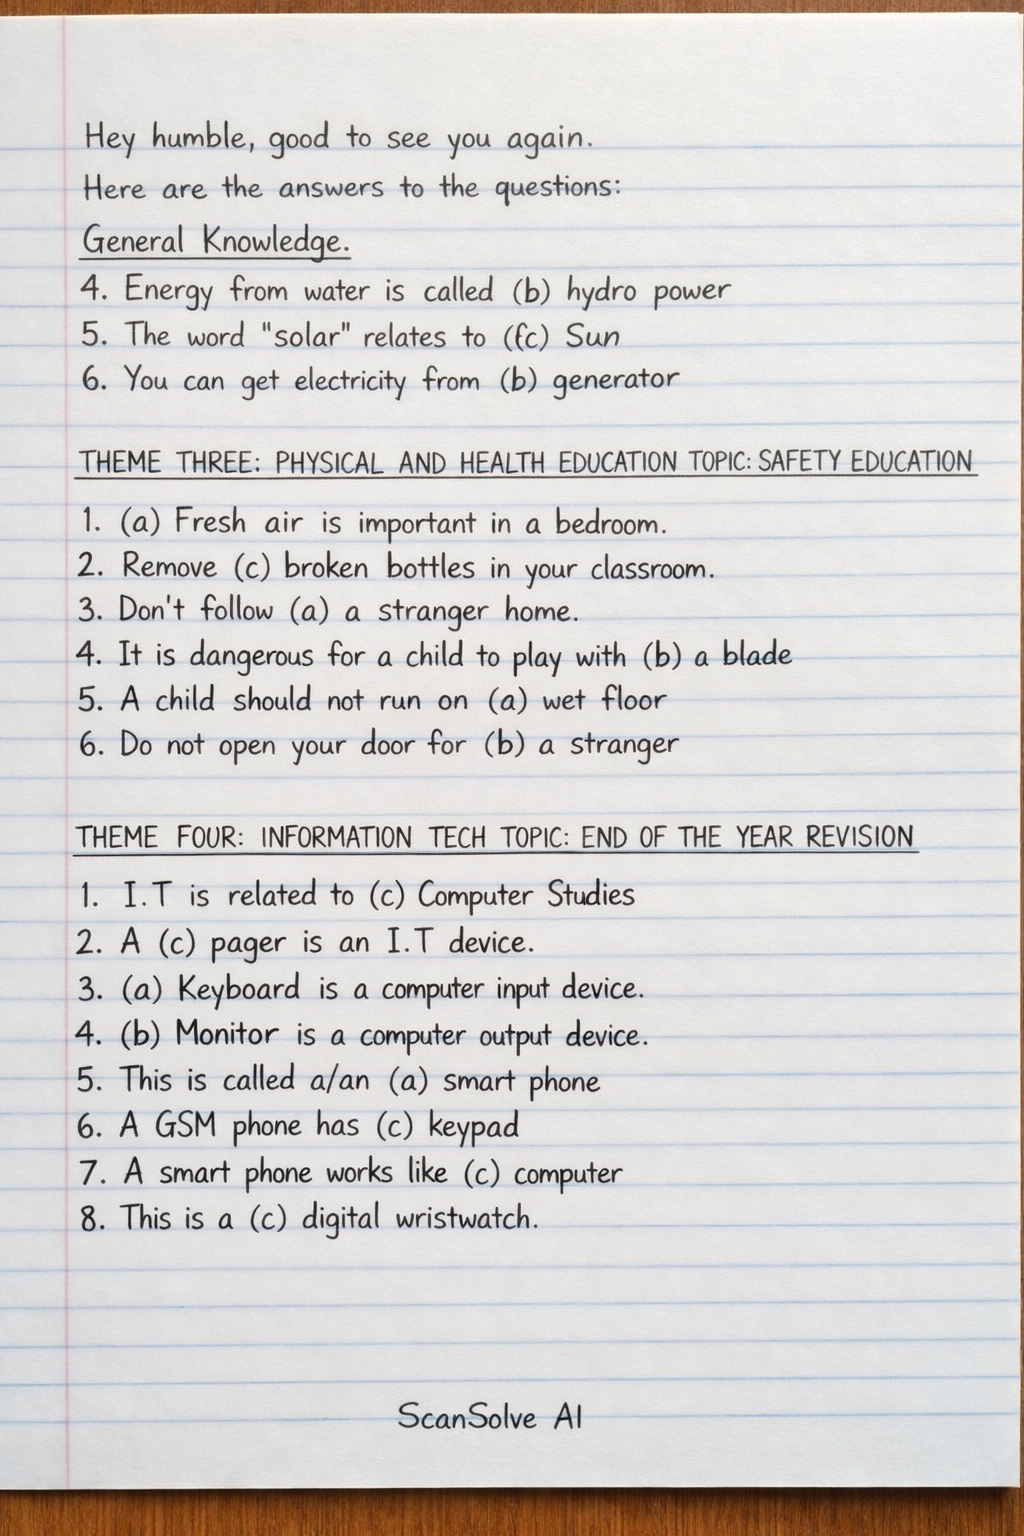 Hey humble, good to see you again.
Here are the answers to the questions:
General Knowledge.
4. Energy from water is called (b) hydro power
5. The word "solar" relates to (fc) Sun
6. You can get electricity from (b) generator
THEME THREE: PHYSICAL AND HEALTH EDUCATION TOPIC: SAFETY EDUCATION
1. (a) Fresh air is important in a bedroom.
2. Remove (c) broken bottles in your classroom.
3. Don't follow (a) a stranger home.
4. It is dangerous for a child to play with (b) a blade
5. A child should not run on (a) wet floor
6. Do not open your door for (b) a stranger
THEME FOUR: INFORMATION TECH TOPIC: END OF THE YEAR REVISION
1. I.T is related to (c) Computer Studies
2. A (c) pager is an I.T device.
3. (a) Keyboard is a computer input device.
4. (b) Monitor is a computer output device.
5. This is called a/an (a) smart phone
6. A GSM phone has (c) keypad
7. A smart phone works like (c) computer
8. This is a (c) digital wristwatch.
ScanSolve AI